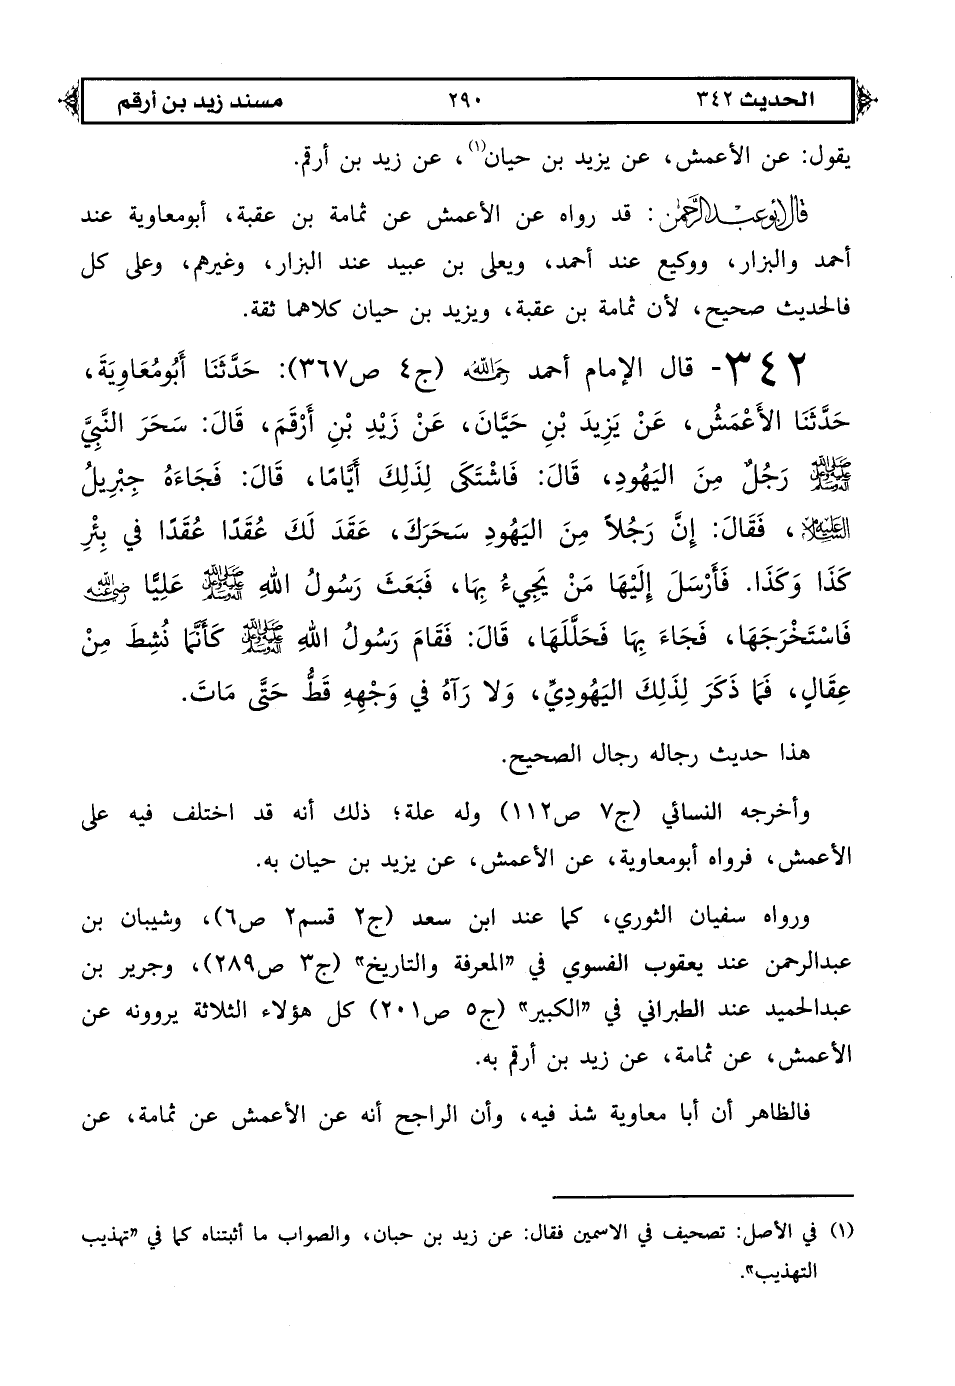 الحديث ٣٤٢ ٢٩٠ مسند زيد بن أرقم
يقول: عن الأعمش، عن يزيد بن حيان(١)، عن زيد بن أرقم.
قال أبو عبد الرحمن: قد رواه عن الأعمش عن ثمامة بن عقبة، أبومعاوية عند
أحمد والبزار، ووكيع عند أحمد، ويعلى بن عبيد عند البزار، وغيرهم، وعلى كل
فالحديث صحيح، لأن ثمامة بن عقبة، ويزيد بن حيان كلاهما ثقة.
٣٤٢- قال الإمام أحمد رحمه الله (ج٤ ص٣٦٧): حَدَّثَنَا أَبُومُعَاوِيَةَ،
حَدَّثَنَا الأَعْمَشُ، عَنْ يَزِيدَ بْنِ حَيَّانَ، عَنْ زَيْدِ بْنِ أَرْقَمَ، قَالَ: سَحَرَ النَّبِيَّ
ﷺ رَجُلٌ مِنَ اليَهُودِ، قَالَ: فَاشْتَكَى لِذَلِكَ أَيَّامًا، قَالَ: فَجَاءَهُ جِبْرِيلُ
عليه السلام، فَقَالَ: إِنَّ رَجُلاً مِنَ اليَهُودِ سَحَرَكَ، عَقَدَ لَكَ عُقَدًا عُقَدًا فِي بِئْرِ
كَذَا وَكَذَا. فَأَرْسَلَ إِلَيْهَا مَنْ يَجِيءُ بِهَا، فَبَعَثَ رَسُولُ اللهِ ﷺ عَلِيًّا رضي الله عنه
فَاسْتَخْرَجَهَا، فَجَاءَ بِهَا فَحَلَّلَهَا، قَالَ: فَقَامَ رَسُولُ اللهِ ﷺ كَأَنَّمَا نُشِطَ مِنْ
عِقَالٍ، فَمَا ذَكَرَ لِذَلِكَ اليَهُودِيِّ، وَلا رَآهُ فِي وَجْهِهِ قَطُّ حَتَّى مَاتَ.
هذا حديث رجاله رجال الصحيح.
وأخرجه النسائي (ج٧ ص١١٢) وله علة؛ ذلك أنه قد اختلف فيه على
الأعمش، فرواه أبومعاوية، عن الأعمش، عن يزيد بن حيان به.
ورواه سفيان الثوري، كما عند ابن سعد (ج٢ قسم٢ ص٦)، وشيبان بن
عبدالرحمن عند يعقوب الفسوي في «المعرفة والتاريخ» (ج٣ ص٢٨٩)، وجرير بن
عبدالحميد عند الطبراني في «الكبير» (ج٥ ص٢٠١) كل هؤلاء الثلاثة يروونه عن
الأعمش، عن ثمامة، عن زيد بن أرقم به.
فالظاهر أن أبا معاوية شذ فيه، وأن الراجح أنه عن الأعمش عن ثمامة، عن
(١) في الأصل: تصحيف في الاسمين فقال: عن زيد بن حبان، والصواب ما أثبتناه كما في «تهذيب
التهذيب».